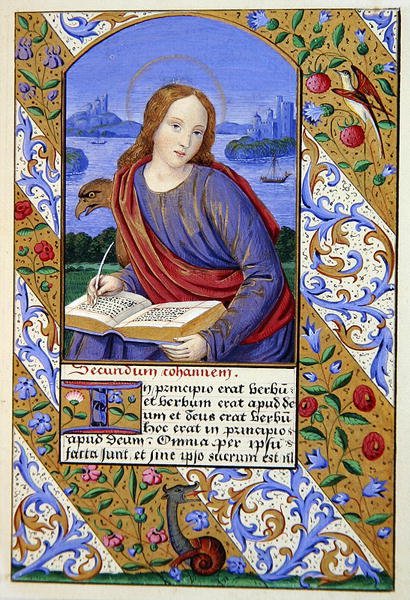 Secundum iohannem.
In principio erat verbū
et verbum erat apud de
um et deus erat verbū
hoc erat in principio
apud deum. Omnia per ipsū
facta sunt, et sine ipso factum est nil